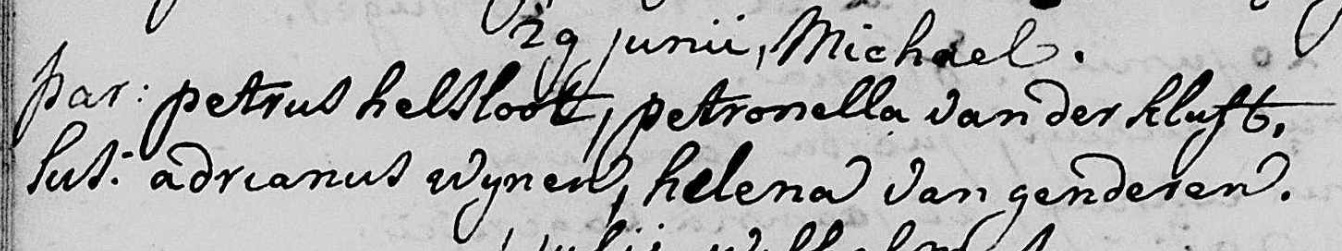 29 junii, Michael.
par: petrus helsloot, petronella van der kluft.
sus: adrianus wynen, helena van genderen.